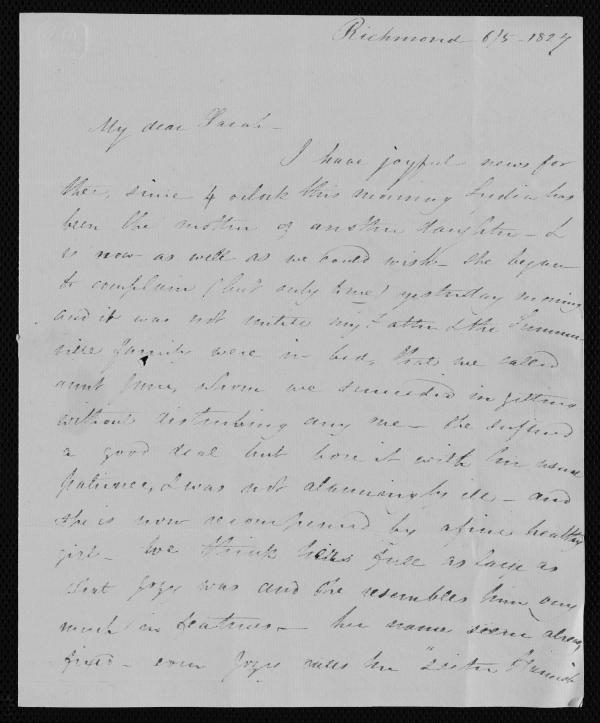 Richmond 6/5 - 1827
My dear Sarah -
I have joyful news for
thee, since 4 oclock this morning Lydia has
been the mother of another daughter - L
is now as well as we could wish - she began
to complain (but only to me) yesterday morning
and it was not untill my Father & the Summer
ville family were in bed, that we called
aunt June, whom we succeeded in getting
without disturbing any one - She suffered
a good deal but bore it with her usual
patience, & was not alarmingly ill - and
she is now recompensed by a fine healthy
girl - We think her full as large as
that was and she resembles him very
much in features - her name seems already
fixed - even calls her "sister